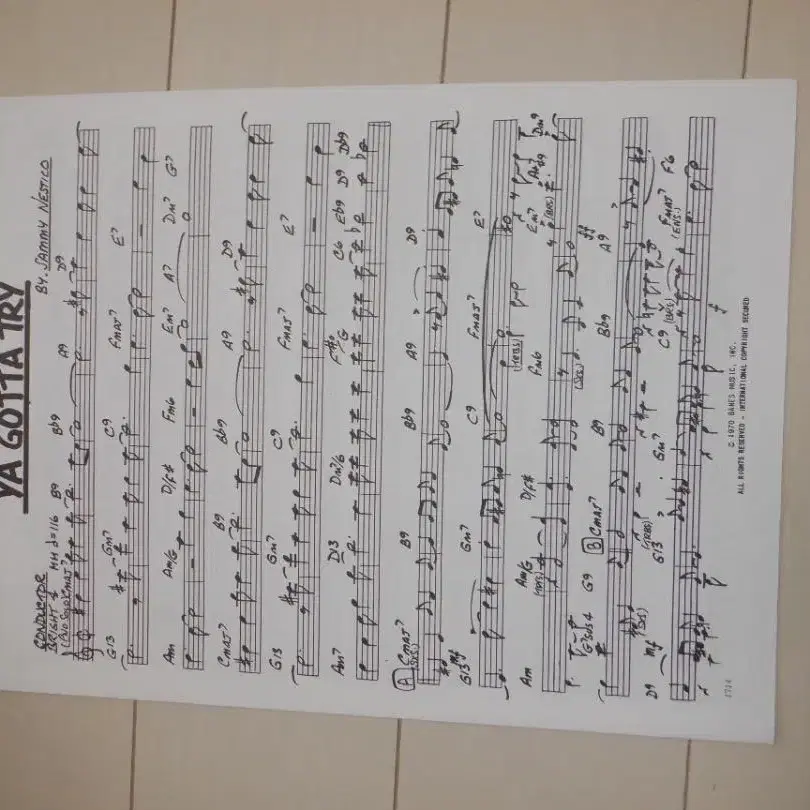 YA GOTTA TRY
CONDUCTOR
BY. SAMMY NESTICO
BRIGHT 4 MM ♩=116
(PNO SOLO) CMAJ7 B9 Bb9 A9 D9
G13 GM7 C9 FMAJ7 E7
AM AM/G D/F# FM6 EM7 A7 DM7 G7
CMAJ7 B9 Bb9 A9 D9
G13 GM7 C9 FMAJ7 E7
AM7 D13 DM7/G C6 Eb9 D9 Db9
A CMAJ7 B9 Bb9 A9 D9
mf
G13 GM7 C9 FMAJ7 E7
AM AM/G D/F# FM6 EM7 DM9
G7SUS4 G9 B CMAJ7 B9 Bb9 A9
D9 mf G13 GM7 C9 FMAJ7 F6
(ENS.)
© 1970 BANES MUSIC, INC.
ALL RIGHTS RESERVED - INTERNATIONAL COPYRIGHT SECURED